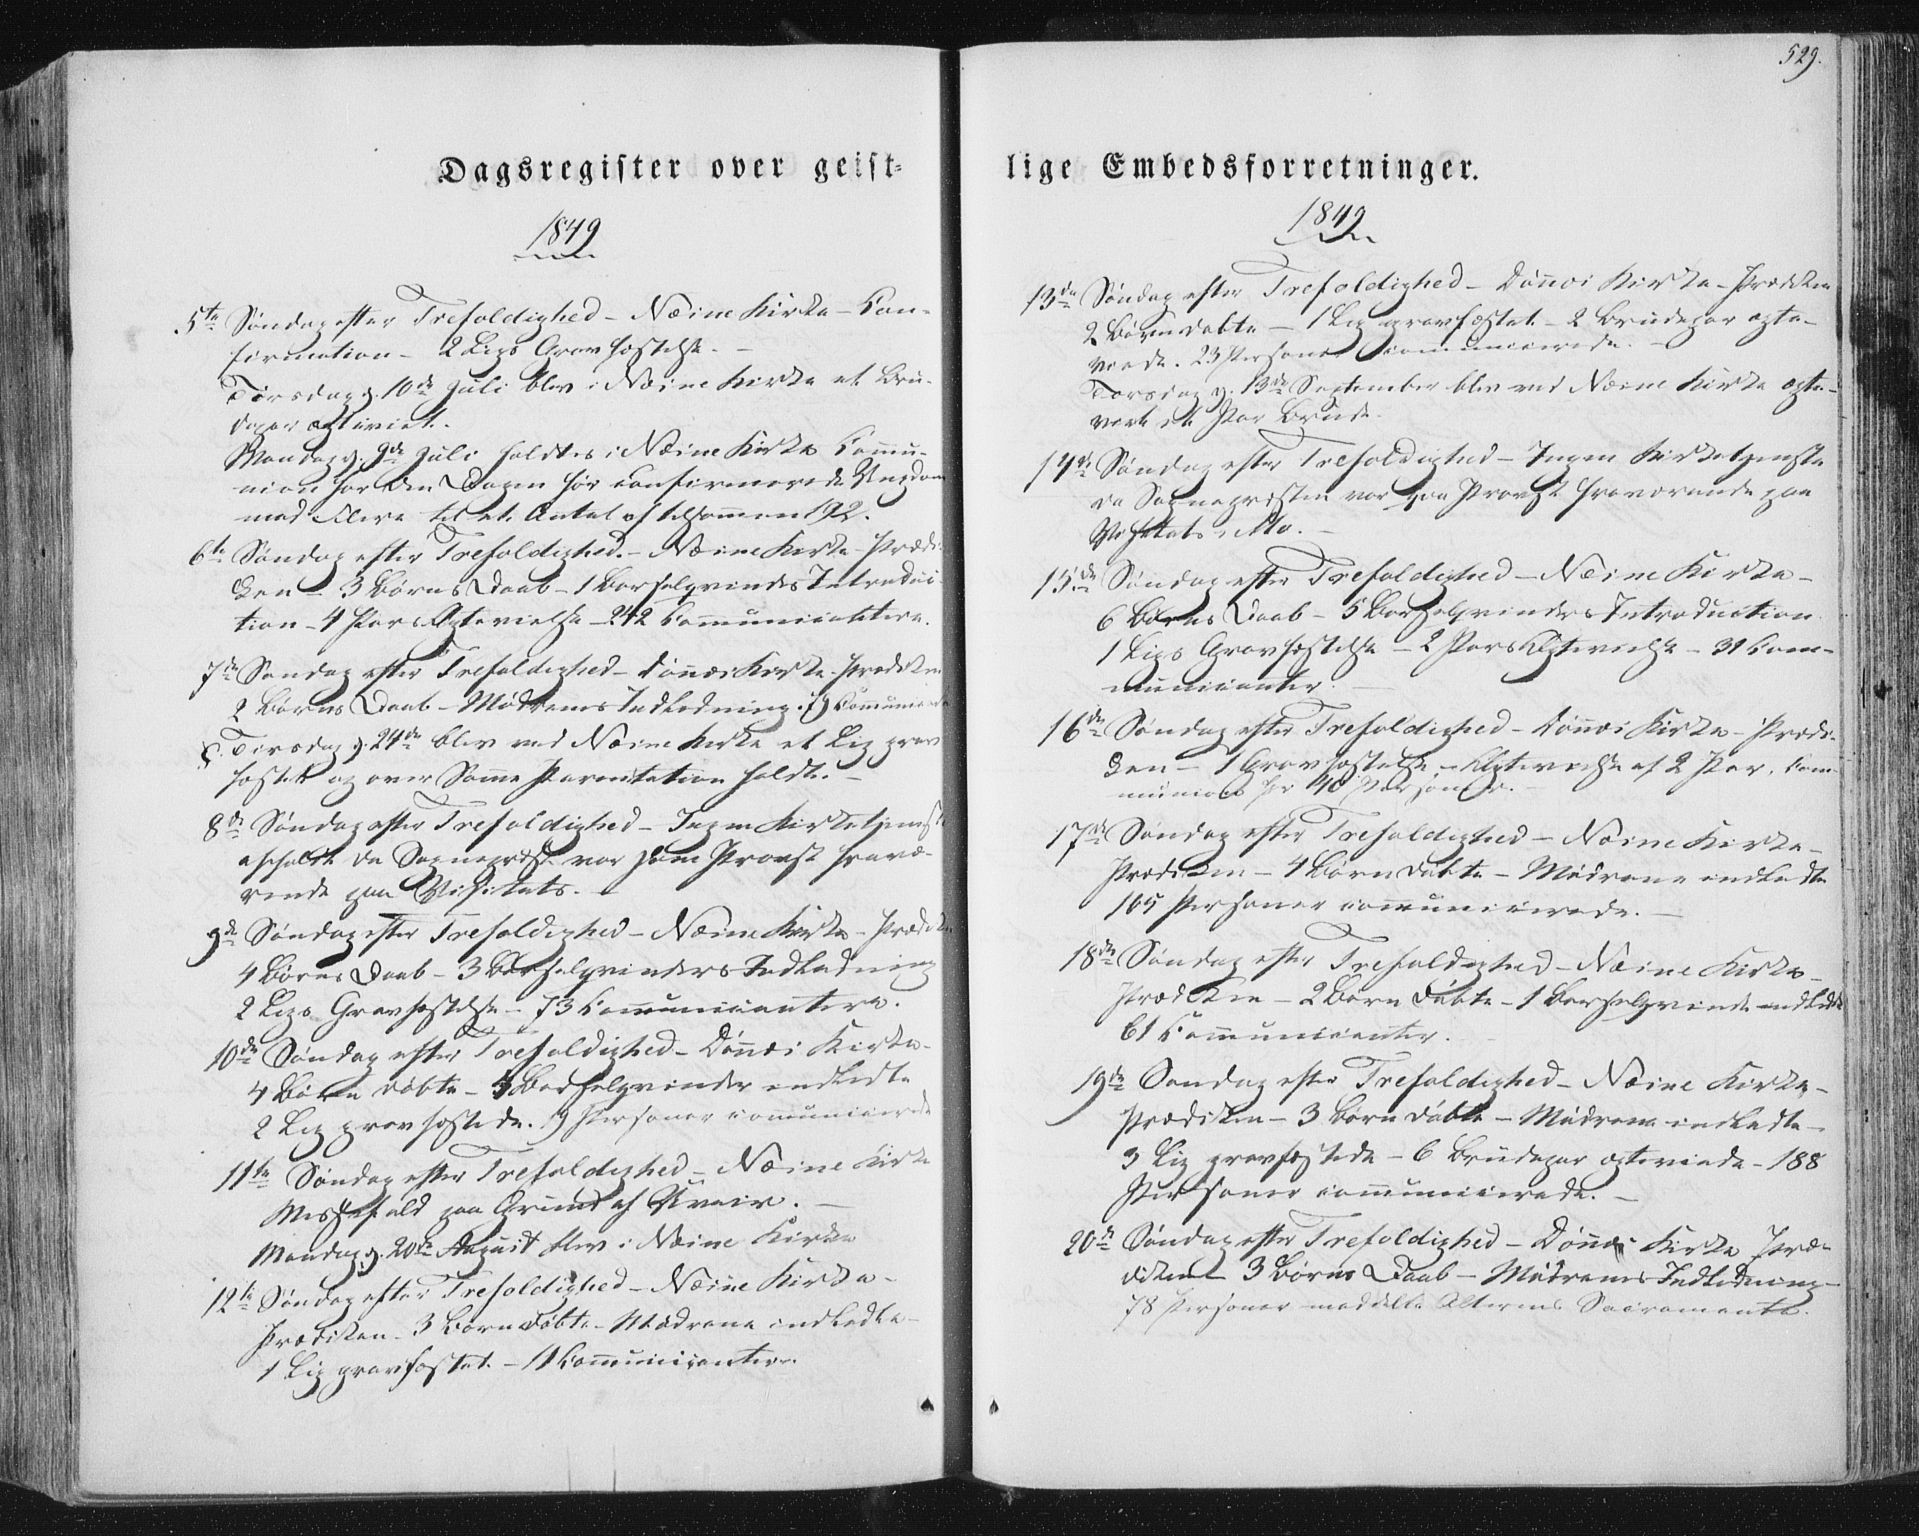 529.
Dagsregister over geist-
1849
5te Søndag efter Trefoldighed – Næsne Kirke – Con-
firmation – 2 Ligs Gravfæstelse. –
Tirsdag d. 10de Juli blev i Næsne Kirke et Bru-
depar ægteviet.
Mandag d. 9de Juli holdtes i Næsne Kirke Commu-
nion for den Dagen før confirmerede Ungdom
med Flere til et Antal af tilsammen 192.
6te Søndag efter Trefoldighed. – Næsne Kirke – Prædi-
ken – 3 Børns Daab – 1 Barselqvindes Introduc-
tion – 4 Pars Ægtevielse – 242 Communicantere.
7de Søndag efter Trefoldighed – Dønnæs Kirke – Prædiken
2 Børns Daab – Mødrenes Indledning. 79 Communicante
Tirsdag d. 24de blev ved Næsne Kirke et Lig grav-
fæstet og over Samme Parentation holdt. –
8de Søndag efter Trefoldighed – Ingen Kirketjeneste
afholdt da Sognepræst. var som Provst fravæ-
rende paa Visitats. –
9de Søndag efter Trefoldighed – Næsne Kirke – Prædiken
4 Børns Daab – 3 Barselqvinders Indledning
2 Ligs Gravfæstelse – 73 Communicantere.
10de Søndag efter Trefoldighed – Dønnæs Kirke –
4 Børn døbte – 3 Barselqvinder indledte
2 Lig gravfæstede. 9 Personer communicerede
11te Søndag efter Trefoldighed – Næsne Kirke
Messefald paa Grund af Uveir. –
Mandag d. 20de August blev i Næsne Kirke
12te Søndag efter Trefoldighed – Næsne Kirke –
Prædiken – 3 Børn døbte – Mødrene indledte –
1 Lig gravfæstet – 11 Communicantere.
lige Embedsforretninger.
1849
13de Søndag efter Trefoldighed – Dønnæs Kirke – Prædiken
2 Børn døbte – 1 Lig gravfæstet – 2 Brudepar ægte-
viede. 23 Personer communicerede. –
Torsdag d. 13de September blev ved Næsne Kirke ægte-
viet et Par Brude.
14de Søndag efter Trefoldighed – Ingen Kirketjeneste
da Sognepræsten var som Provst fraværende paa
Visitats i Mo. –
15de Søndag efter Trefoldighed – Næsne Kirke –
6 Børns Daab – 5 Barselqvinders Introduction
1 Ligs Gravfæstelse – 2 Pars Ægtevielse – 31 Com-
municanter. –
16de Søndag efter Trefoldighed – Dønnæs Kirke – Prædi-
ken – 1 Gravfæstelse – Ægtevielse af 2 Par. Com-
munion for 40 Personer. –
17de Søndag efter Trefoldighed – Næsne Kirke –
Prædiken – 4 Børn døbte – Mødrene indledte
105 Personer communicerede. –
18de Søndag efter Trefoldighed – Næsne Kirke –
Prædiken – 2 Børn døbte – 1 Barselqvinde indledte
61 Communicanter.
19de Søndag efter Trefoldighed – Næsne Kirke –
Prædiken – 3 Børn døbte – Mødrene indledte –
3 Lig gravfæstede – 6 Brudepar ægteviede – 188
Personer communicerede. –
20de Søndag efter Trefoldighed – Dønnæs Kirke Præ-
diken – 3 Børns Daab – Mødrenes Indledning –
78 Personer meddelte Alterens Sacramente.